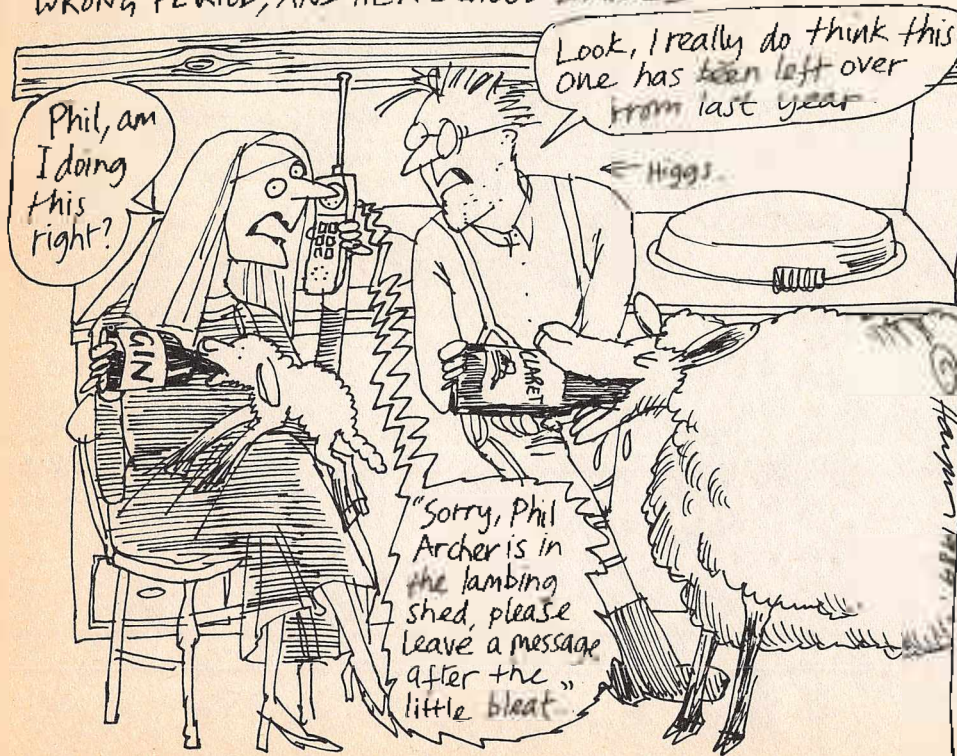 WRONG PERIOD, AND HER
Phil, am
I doing
this
right?
Look, I really do think this
one has been left over
from last year
← Higgs.
GIN
CLARET
"Sorry, Phil
Archer is in
the lambing
shed, please
leave a message
after the
little bleat."